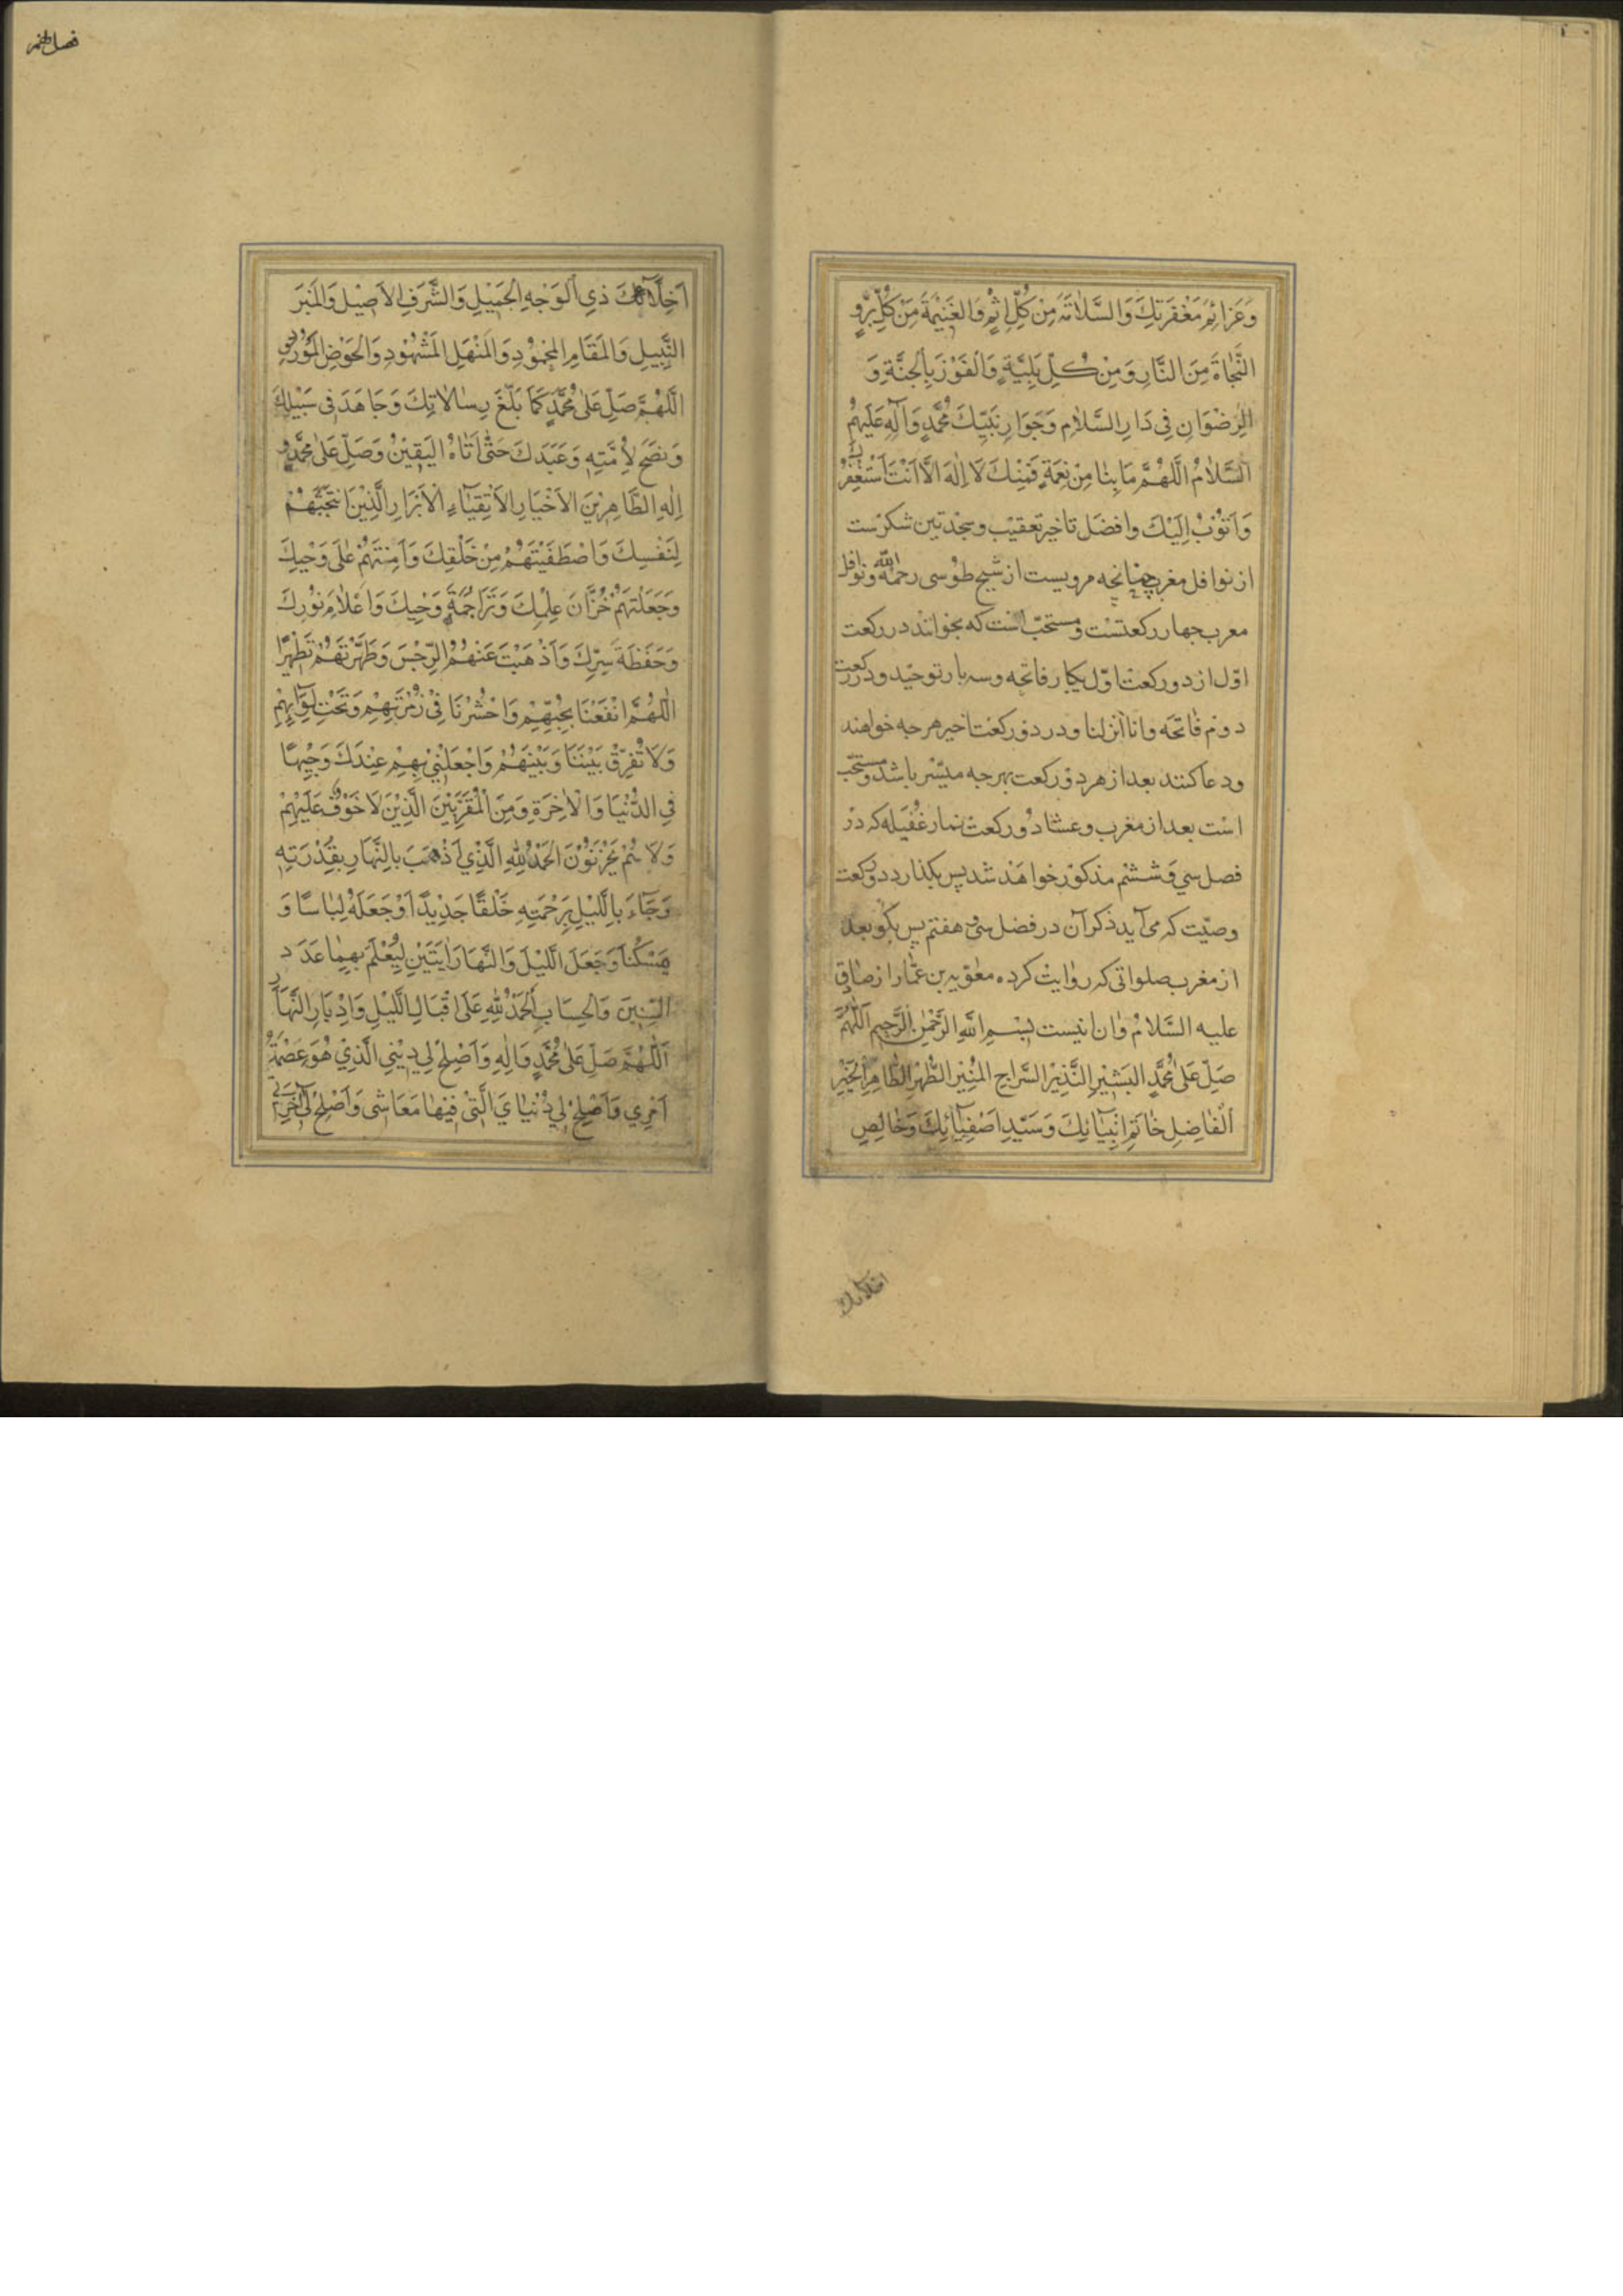 وَعَزَائِمَ مَغْفِرَتِكَ وَالسَّلَامَةَ مِنْ كُلِّ اِثْمٍ وَالْغَنِيمَةَ مِنْ كُلِّ بِرٍّ وَ
النَّجَاةَ مِنَ النَّارِ وَمِنْ كُلِّ بَلِيَّةٍ وَالْفَوْزَ بِالْجَنَّةِ وَ
الرِّضْوَانِ فِي دَارِ السَّلَامِ وَجَوَارِ نَبِيِّكَ مُحَمَّدٍ وَآلِهِ عَلَيْهِمُ
السَّلَامُ اللَّهُمَّ مَا بِنَا مِنْ نِعْمَةٍ فَمِنْكَ لَا اِلٰهَ اِلَّا اَنْتَ اَسْتَغْفِرُكَ
وَاَتُوبُ اِلَيْكَ وافضل تاخير تعقيب وسجدتين شكرست
از نوافل مغرب چنانچه مرويست از شيخ طوسى رحمه الله ونوافل
مغرب چهار ركعتست ومستحبّ است كه بخوانند در ركعت
اوّل از دو ركعت اوّل يكبار فاتحه وسه بار توحيد ودر ركعت
دوم فاتحه وانا انزلنا ودر دو ركعت اخير هر چه خواهند
ودعا كنند بعد از هر دو ركعت بهر چه ميسّر باشد ومستحبّ
است بعد از مغرب وعشا دو ركعت نماز غفيله كه در
فصل سي وششم مذكور خواهد شد پس بگذارد دو ركعت
وصيّت كه مى آيد ذكر آن در فصل سى وهفتم پس بگو بعد
از مغرب صلواتى كه روايت كرده معٰويه بن عمّار از صادق
عليه السَّلام وان اينست بِسْمِ اللهِ الرَّحْمٰنِ الرَّحِيمِ اَللّٰهُمَّ
صَلِّ عَلىٰ مُحَمَّدٍ الْبَشِيْرِ النَّذِيْرِ السِّرَاجِ الْمُنِيْرِ الطُّهْرِ الطَّاهِرِ الْخَيْرِ
الْفَاضِلِ خَاتَمِ اَنْبِيَائِكَ وَسَيِّدِ اَصْفِيَائِكَ وَخَالِصِ
اخلائك
فصل
اَخِلَّائِكَ ذِي الْوَجْهِ الْجَمِيْلِ وَالشَّرَفِ الْاَصِيْلِ وَالْمِنْبَرِ
النَّبِيلِ وَالْمَقَامِ الْمَحْمُوْدِ وَالْمَنْهَلِ الْمَشْهُوْدِ وَالْحَوْضِ الْمَوْرُوْدِ
اللّٰهُمَّ صَلِّ عَلىٰ مُحَمَّدٍ كَمَا بَلَّغَ رِسَالَاتِكَ وَجَاهَدَ فِى سَبِيْلِكَ
وَنَصَحَ لِاُمَّتِهِ وَعَبَدَكَ حَتّٰى اَتَاهُ الْيَقِيْنُ وَصَلِّ عَلىٰ مُحَمَّدٍ وَ
اٰلِهِ الطَّاهِرِيْنَ الْاَخْيَارِ الْاَتْقِيَاءِ الْاَبْرَارِ الَّذِيْنَ انْتَجَبْتَهُمْ
لِنَفْسِكَ وَاصْطَفَيْتَهُمْ مِنْ خَلْقِكَ وَاَمِنْتَهُمْ عَلىٰ وَحْيِكَ
وَجَعَلْتَهُمْ خُزَّانَ عِلْمِكَ وَتَرَاجِمَةَ وَحْيِكَ وَاَعْلَامَ نُوْرِكَ
وَحَفَظَةَ سِرِّكَ وَاَذْهَبْتَ عَنْهُمُ الرِّجْسَ وَطَهَّرْتَهُمْ تَطْهِيْرًا
اللّٰهُمَّ انْفَعْنَا بِحُبِّهِمْ وَاحْشُرْنَا فِيْ زُمْرَتِهِمْ وَتَحْتَ لِوَائِهِمْ
وَلَا تُفَرِّقْ بَيْنَنَا وَبَيْنَهُمْ وَاجْعَلْنِيْ بِهِمْ عِنْدَكَ وَجِيْهًا
فِي الدُّنْيَا وَالْاٰخِرَةِ وَمِنَ الْمُقَرَّبِيْنَ الَّذِيْنَ لَا خَوْفٌ عَلَيْهِمْ
وَلَا هُمْ يَحْزَنُوْنَ الْحَمْدُ لِلّٰهِ الَّذِيْ اَذْهَبَ بِالنَّهَارِ بِقُدْرَتِهِ
وَجَاءَ بِاللَّيْلِ بِرَحْمَتِهِ خَلْقًا جَدِيْدًا وَجَعَلَهُ لِبَاسًا وَ
مَسْكَنًا وَجَعَلَ اللَّيْلَ وَالنَّهَارَ اٰيَتَيْنِ لِيُعْلَمَ بِهِمَا عَدَدَ
السِّنِيْنَ وَالْحِسَابِ الْحَمْدُ لِلّٰهِ عَلىٰ اِقْبَالِ اللَّيْلِ وَاِدْبَارِ النَّهَارِ
اَللّٰهُمَّ صَلِّ عَلىٰ مُحَمَّدٍ وَاٰلِهِ وَاَصْلِحْ لِي دِيْنِي الَّذِيْ هُوَ عِصْمَةُ
اَمْرِي وَاَصْلِحْ لِي دُنْيَايَ الَّتِيْ فِيْهَا مَعَاشِى وَاَصْلِحْ لِي اٰخِرَتِي